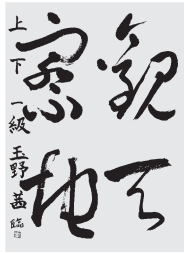 觀天
察地
上下 一級 玉野茜臨